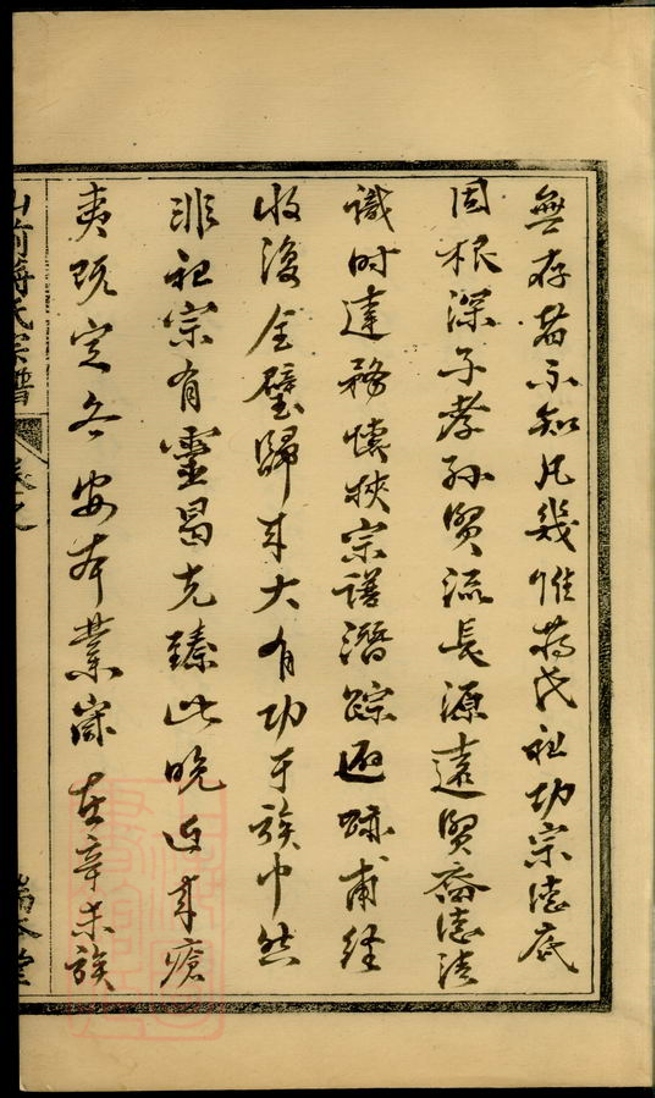 無存者不知凡幾惟蔣氏祖功宗德底
固根深子孝孫賢流長源遠賢裔德清
識時達務懷挾宗譜潛踪避跡甫經
收復全璧歸來大有功于族中然
非祖宗有靈曷克臻此晩近來瘡
夷既定各安本業歲在辛未族
山前蔣氏宗譜